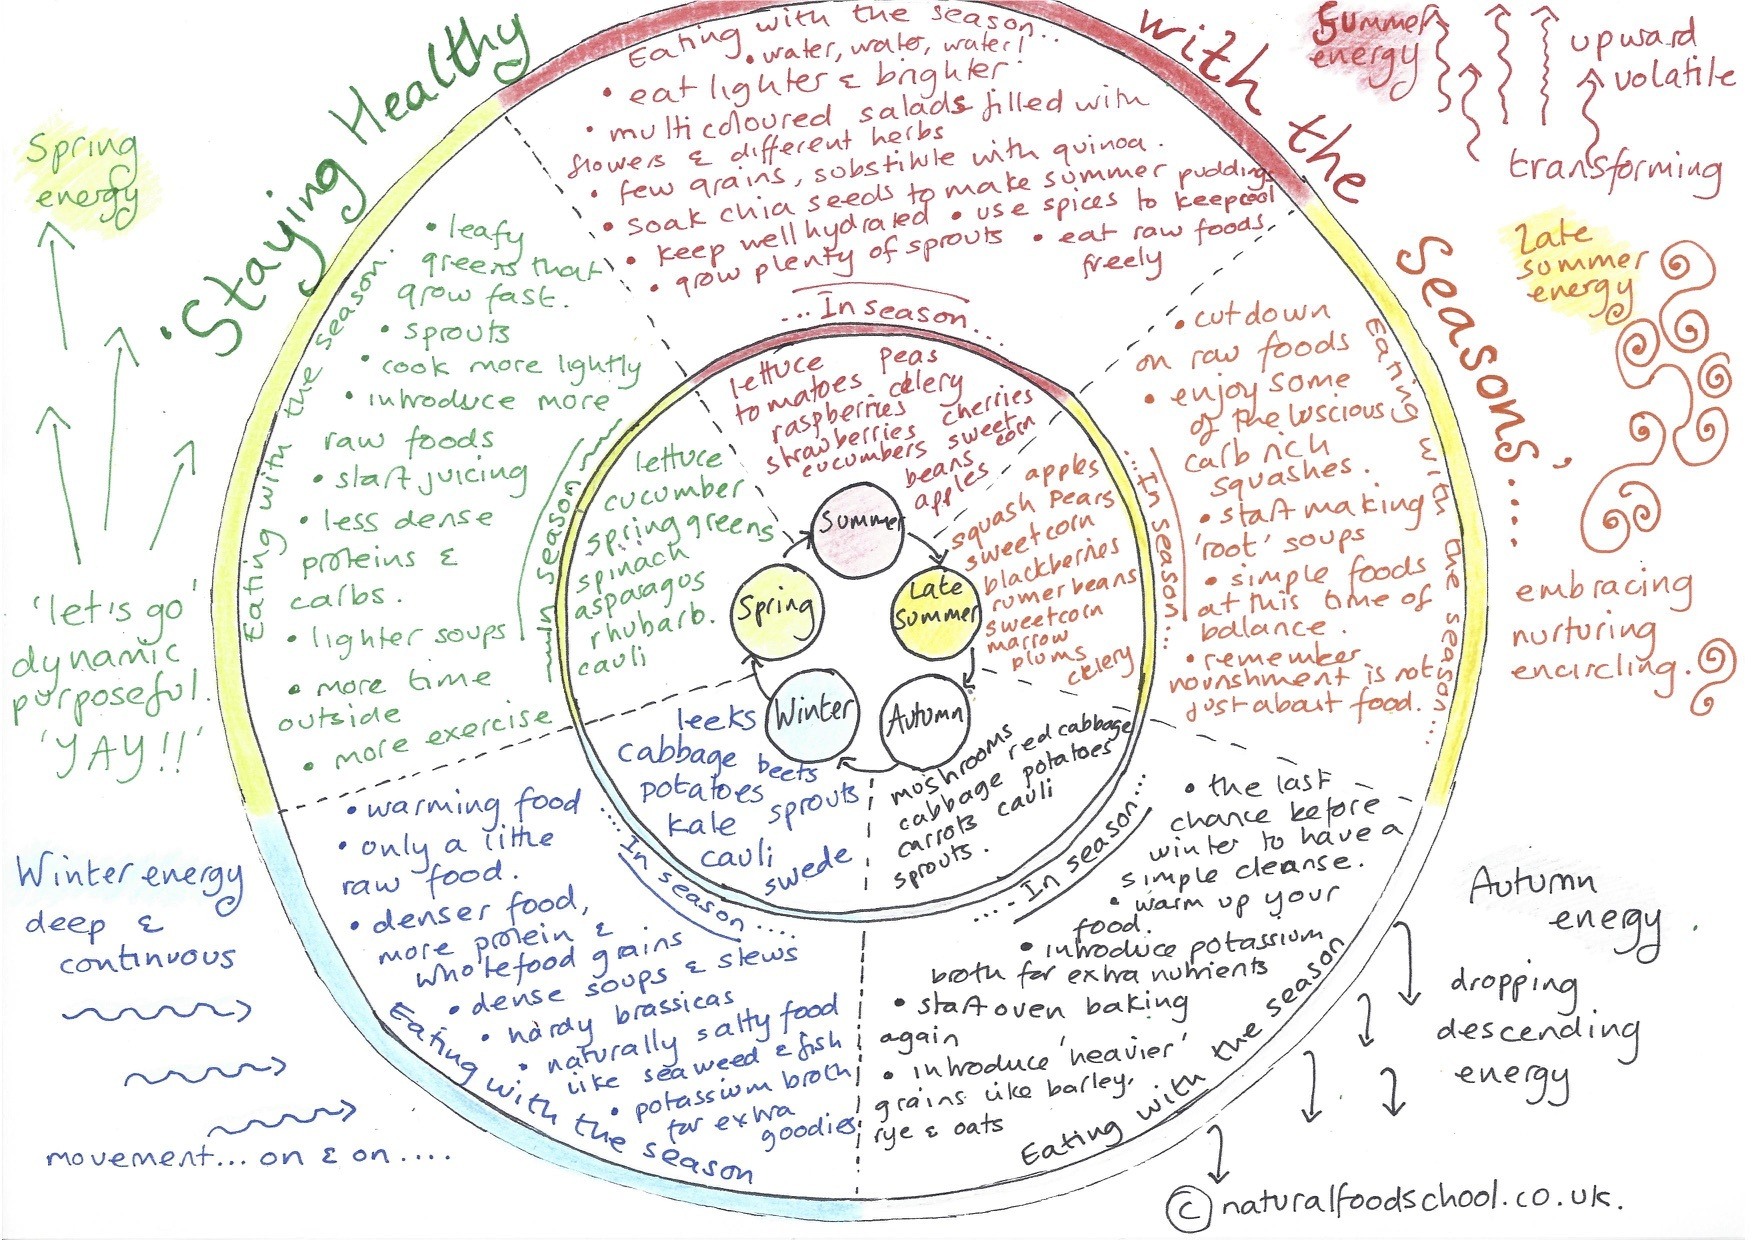 Staying Healthy with the Seasons.....
Spring
energy
'let's go'
dynamic
purposeful.
'YAY!!'
Summer
energy
upward
volatile
transforming
Late
summer
energy
embracing
nurturing
encircling.
Autumn
energy.
dropping
descending
energy
Winter energy
deep &
continuous
movement... on & on....
Eating with the season...
• water, water, water!
• eat lighter & brighter
• multi coloured salads filled with
flowers & different herbs
• few grains, substitute with quinoa.
• soak chia seeds to make summer puddings
• keep well hydrated • use spices to keep cool
• grow plenty of sprouts • eat raw foods,
freely
...In season...
lettuce peas
tomatoes celery
raspberries cherries
strawberries sweet
corn
cucumbers beans
apples
Eating with the season...
• cut down
on raw foods
• enjoy some
of the luscious
carb rich
squashes.
• start making
'root' soups
• simple foods
at this time of
balance.
• remember
nourishment is not
just about food.
...In season...
apples
squash pears
sweetcorn
blackberries
runner beans
sweetcorn
marrow
plums
celery
Eating with the season
• the last
chance before
winter to have a
simple cleanse.
• warm up your
food.
• introduce potassium
broth for extra nutrients
• start oven baking
again
• introduce 'heavier'
grains like barley,
rye & oats
....In season...
mushrooms red cabbage
cabbage potatoes
carrots cauli
sprouts.
Eating with the season
• warming food
• only a little
raw food.
• denser food,
more protein &
wholefood grains
• dense soups & stews
• hardy brassicas
• naturally salty food
like seaweed & fish
• potassium broth
for extra
goodies
....In season....
leeks
cabbage beets
potatoes sprouts
kale
cauli
swede
Eating with the season.
• leafy
greens that
grow fast.
• sprouts
• cook more lightly
• introduce more
raw foods
• start juicing
• less dense
proteins &
carbs.
• lighter soups
• more time
outside
• more exercise
...In season...
lettuce
cucumber
spring greens
spinach
asparagus
rhubarb.
cauli
Summer
Late
Summer
Autumn
Winter
Spring
© naturalfoodschool.co.uk.